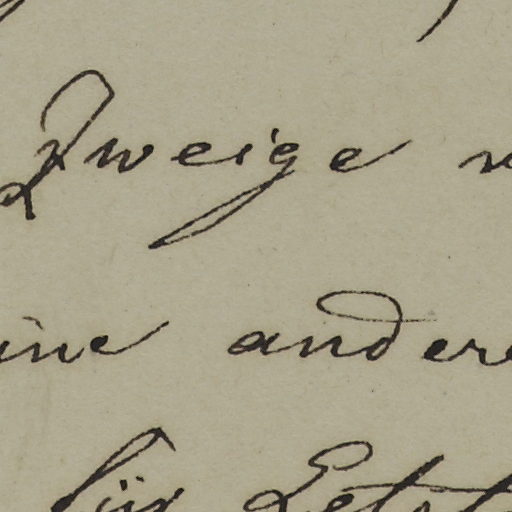 Zweige
ine andere
für Letzt